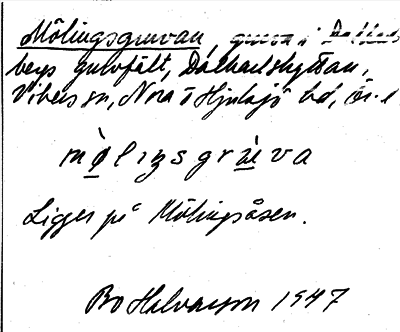 Mölingsgruvan, gruva i Dalkarls-
bergs gruvfält, Dalkarlshyttan,
Vikers sn, Nora o Hjulsjö bd, Ör. l
mø̀lıŋsgrʉ̀va
Ligger på Mölingsåsen.
Bo Halvarson 1947